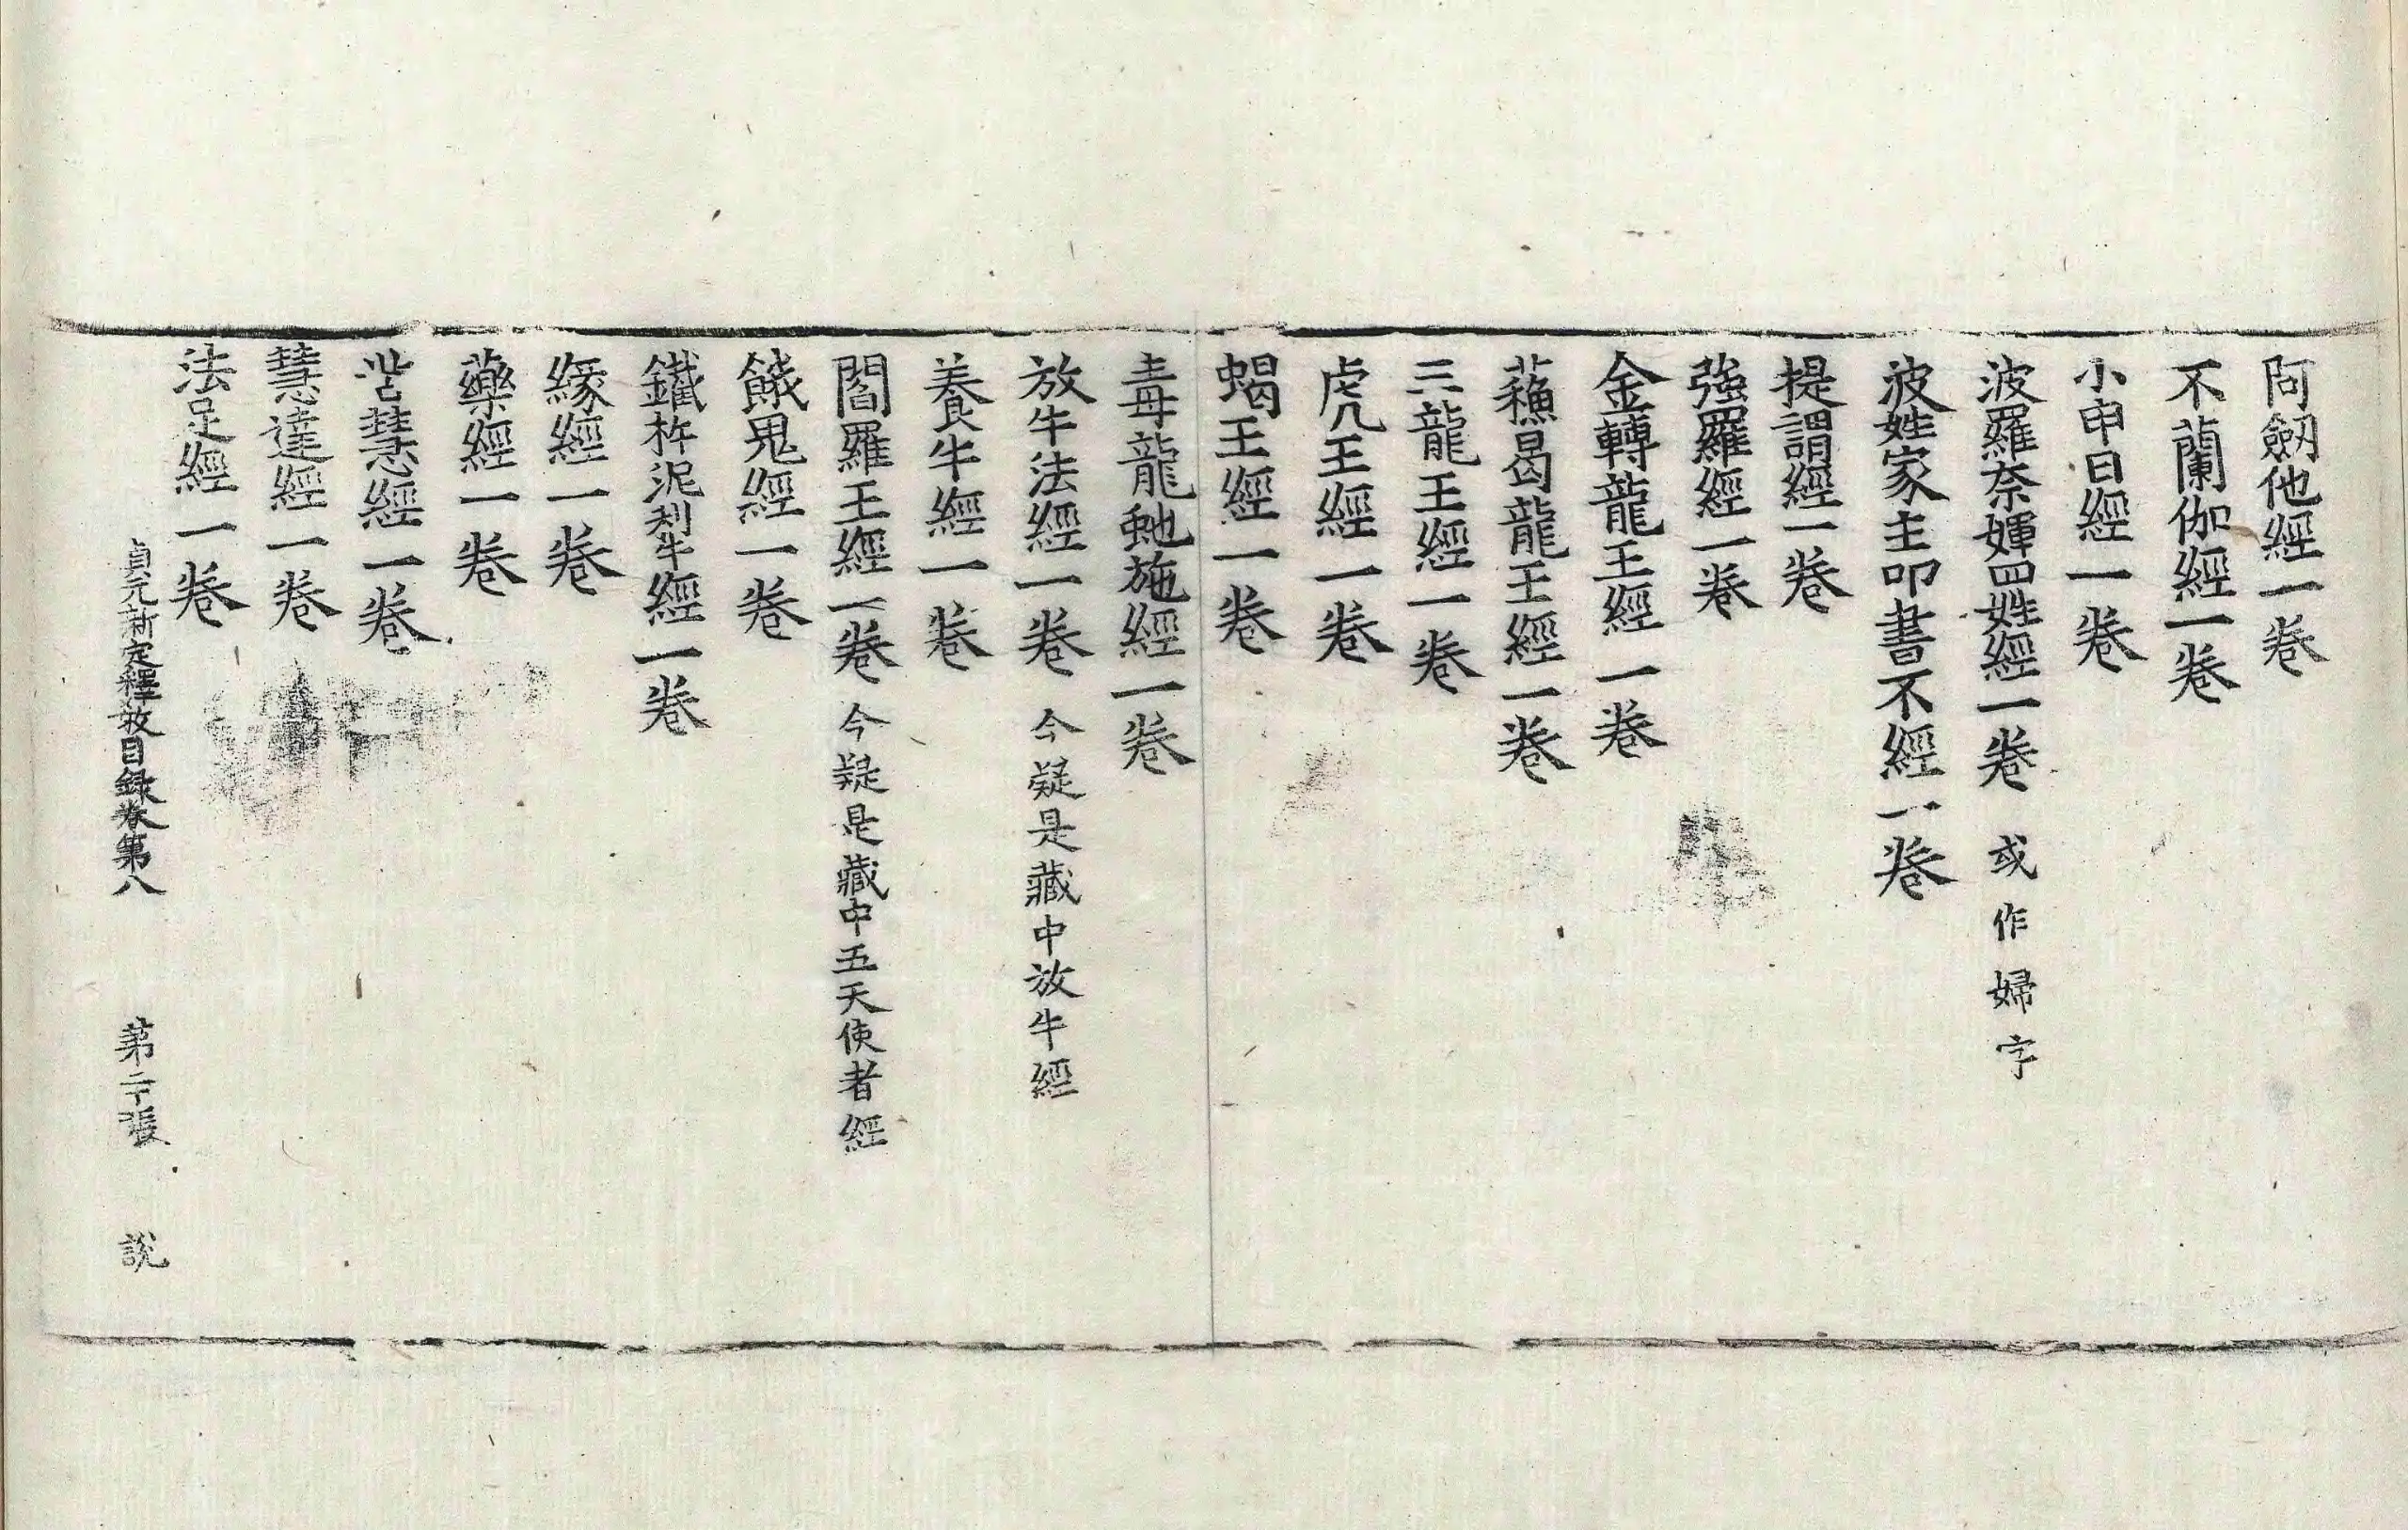 阿劒他經一卷
不蘭伽經一卷
小申日經一卷
波羅奈媈四姓經一卷 或作婦字
波姓家主叩書不經一卷
提謂經一卷
強羅經一卷
金轉龍王經一卷
蘓曷龍王經一卷
三龍王經一卷
虎王經一卷
蝎王經一卷
毒龍虵施經一卷
放牛法經一卷 今疑是藏中放牛經
養牛經一卷
閻羅王經一卷 今疑是藏中五天使者經
餓鬼經一卷
鐵杵泥利牛經一卷
緣經一卷
藥經一卷
呰慧經一卷
慧達經一卷
法足經一卷
貞元新定釋教目録卷第八 第二十張 說